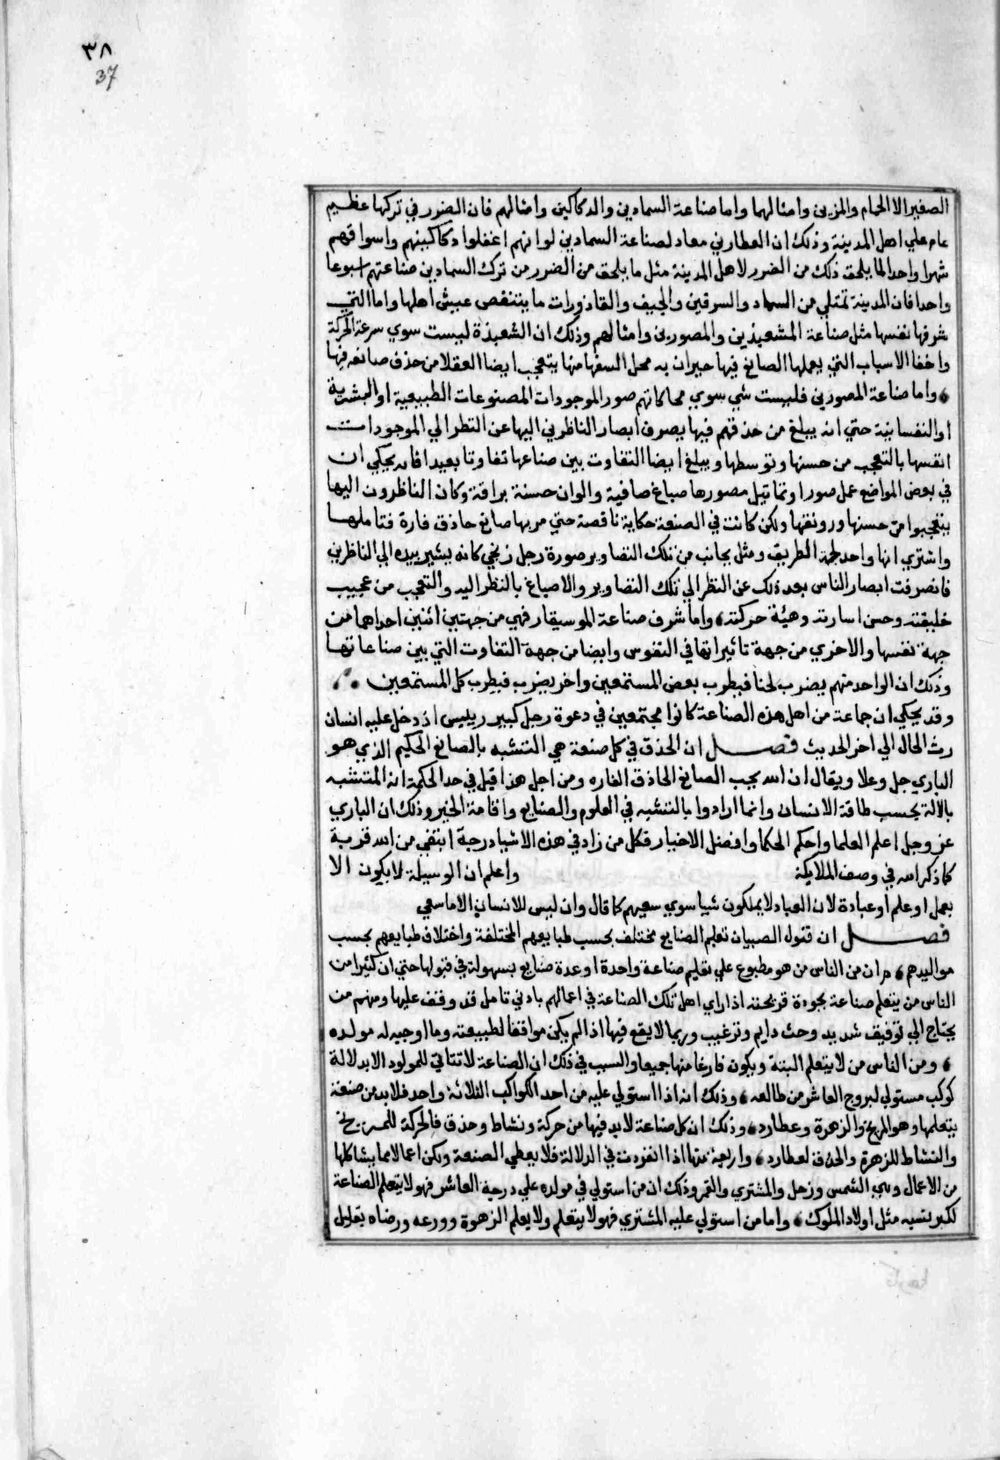 ٣٨
37
الصفير الا الحمام والمزين وامثالهما واما صناعة السمادين والدكاكين وامثالهم فان الضرر في تركها عظيم
عام علي اهل المدينة وذلك ان العطارين معاد لصناعة السمادين لو انهم اغفلوا دكاكينهم واسواقهم
شهرا واحدا لما يلحق ذلك من الضرر لاهل المدينة مثل ما يلحق من الضرر من ترك السمادين صناعتهم اسبوعا
واحدا فان المدينة تمتلي من السماد والسرقين والجيف والقاذورات ما يتنقص عيش اهلها واما التي
شرفها نفسها مثل صناعة المشعبذين والمصورين وامثالهم وذلك ان الشعبذة ليست سوي سرعة الحركة
واخفا الاسباب التي يعملها الصانع فيها حيران به محل السفها منها يتعجب ايضا العقلا من حذق صانعه فيها
واما صناعة المصورين فليست شي سوي محاكاتهم صور الموجودات المصنوعات الطبيعية او البشرية
او النفسانية حتي انه يبلغ من حذقهم فيها يصرف ابصار الناظرين اليها عن النظر الي الموجودات
انفسها بالتعجب من حسنها وتوسطها ويبلغ ايضا التفاوت بين صناعها تفاوتا بعيدا فانه يحكي ان
في بعض المواضع عمل صورا وتماثيل مصورها صباغ صافية والوان حسنة براقة وكان الناظرون اليها
يتعجبوا من حسنها ورونقها ولكن كانت في الصنعة حكاية ناقصة حتي مر بها صانع حاذق فارة فتاملها
واشتري انها واحد لحمة الطريق ومثل بجانب من تلك التصاوير صورة رجل زنجي كانه يشير بيده الي الناظرين
فانصرفت ابصار الناس بعد ذلك عن النظر الي تلك التصاوير والاصباغ بالنظر اليه والتعجب من عجيب
خليقته وحسن اسارته وهيئة حركته واما شرف صناعة الموسيقار فهي من جهتين اثنين احداهما من
جهة نفسها والاخري من جهة تاثيراتها في النفوس وايضا من جهة التفاوت التي بين صناعاتها
وذلك ان الواحد منهم يضرب لحنا فيطرب بعض المستمعين واخر يضرب فيطرب كل المستمعين
وقد يحكي ان جماعة من اهل هذه الصناعة كانوا مجتمعين في دعوة رجل كبير رييس اذ دخل عليه انسان
رث الحال الي اخر الحديث فصل ان الحذق في كل صنعة هي التشبه بالصانع الحكيم الذي هو
الباري جل وعلا ويقال ان الله يحب الصانع الحاذق الفاره ومن اجل هذا قيل في حد الحكمة انه المتشبه
بالالة بحسب طاقة الانسان وانما ارادوا بالتشبه في العلوم والصنايع واقامة الخير وذلك ان الباري
عز وجل اعلم العلما واحكم الحكما وافضل الاخيار فكل من زاد في هذه الاشيا درجة ابتغي من الله قربة
كما ذكر الله في وصف الملايكة واعلم ان الوسيلة لا يكون الا
بعمل او علم او عبادة لان العباد لا يملكون شيا سوي سعيهم كما قال وان ليس للانسان الا ما سعي
فصل ان قبول الصبيان تعلم الصنايع مختلف بحسب طبايعهم المختلفة واختلاف طبايعهم بحسب
مواليدهم من ان من الناس من هو مطبوع علي تعليم صناعة واحدة او عدة صنايع بسهولة في قبولها حتي ان كثيرا من
الناس من يتعلم صناعة بجودة قريحته اذا راي اهل تلك الصناعة في اعمالهم بادني تامل قد وقف عليها ومنهم من
يحتاج الي توفيق شديد وحث دايم وترغيب وربما لا يقع فيها اذا لم يكن موافقا لطبيعته وما اوجبه له مولده
ومن الناس من لا يتعلم البتة ويكون فارغا منها جميعا والسبب في ذلك ان الصناعة لا تتاتي للمولود الا بدلالة
كوكب مستولي لبروج العاشر من طالعه وذلك انه اذا استولي عليه من احد الكواكب الثلاثة واحد فلا بد من صنعة
يتعلمها وهو المريخ والزهرة وعطارد وذلك ان كل صناعة لا بد فيها من حركة ونشاط وحذق فالحركة للمريخ
والنشاط للزهرة والحذق لعطارد واربعة منها اذا انفردت في الدلالة فلا يعطي الصنعة ولكن اعمالا بما يشاكلها
من الاعمال وهي الشمس وزحل والمشتري والقمر وذلك ان من استولي في مولده علي درجة العاشر فهو لا يتعلم الصناعة
لكبر نفسه مثل اولاد الملوك واما من استولي عليه المشتري فهو لا يتعلم ولا يعلم الزهوة وورعه ورضاه بقليل